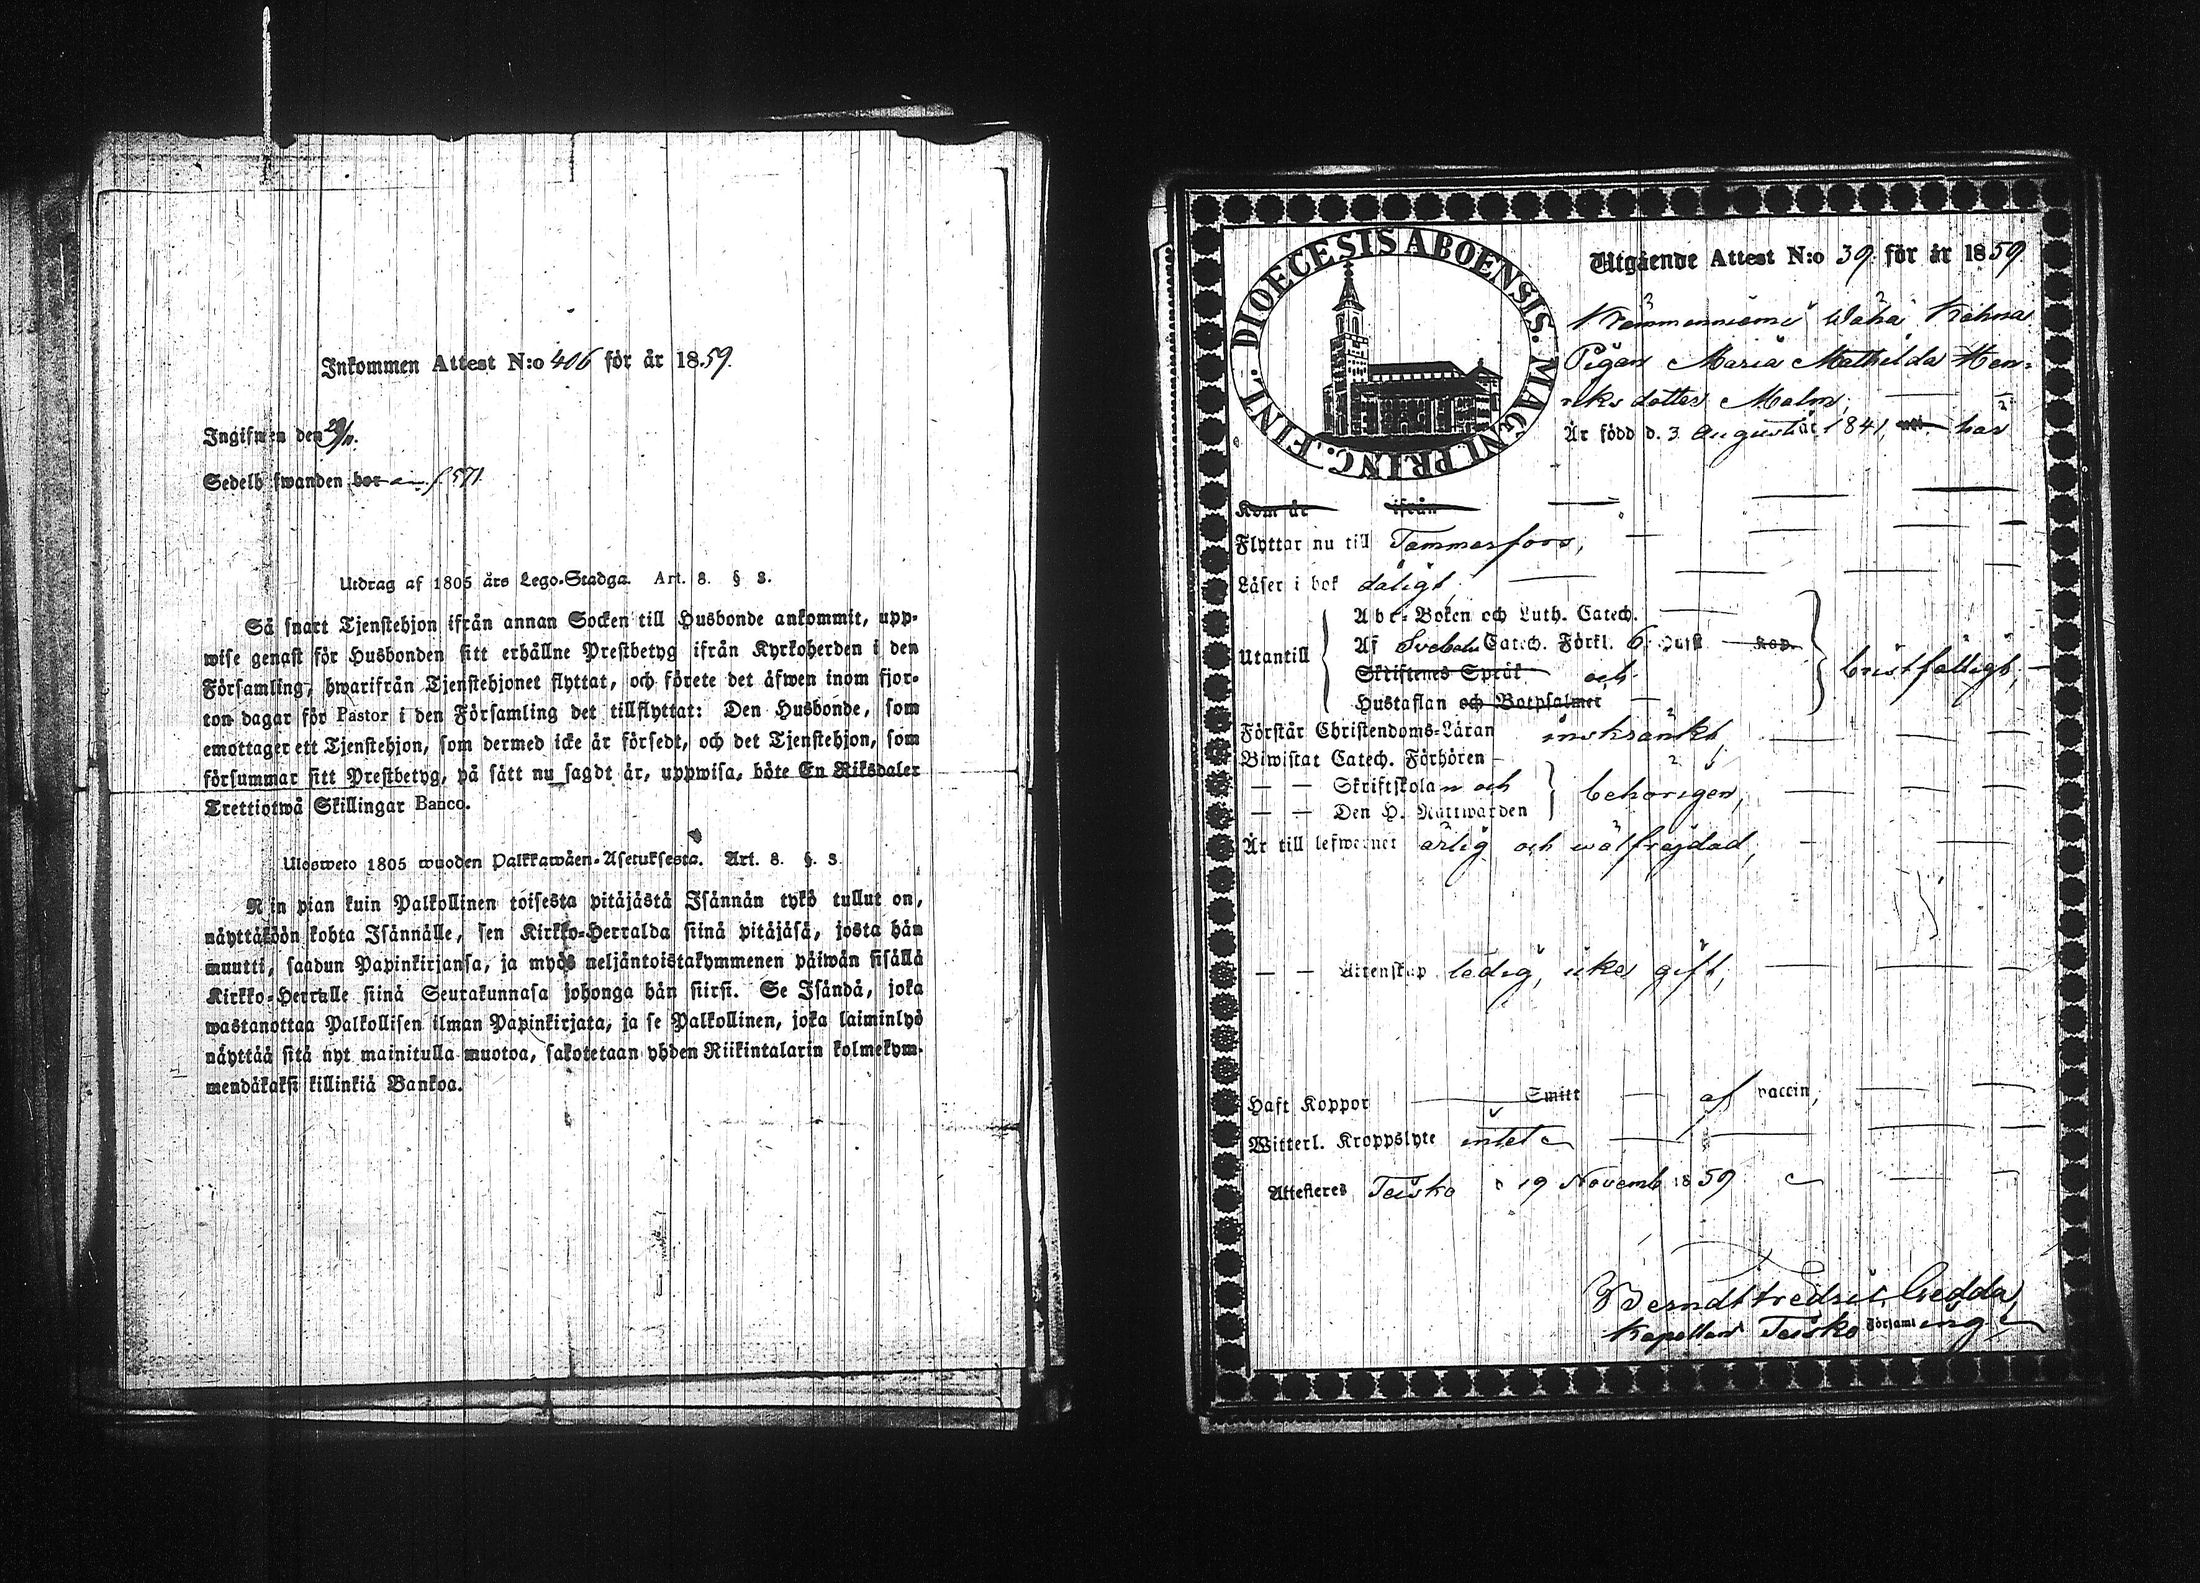 Inkommen Attest N:o 406 för år 1859.
Ingifwen den 29/11.
Sedelhafwanden bor f. 571
Utdrag af 1805 års Lego-Stadga. Art. 8. § 8.
Så snart Tjenstehjon ifrån annan Socken till Husbonde ankommit, upp-
wise genast för Husbonden sitt erhållne Prestbetyg ifrån Kyrkoherden i den
Församling, hwarifrån Tjenstehjonet flyttat, och förete det äfwen inom fjor-
ton dagar för Pastor i den Församling det tillflyttat: Den Husbonde, som
emottager ett Tjenstehjon, som dermed icke är försedt, och det Tjenstehjon, som
försummar sitt Prestbetyg, på sätt nu sagdt är, uppwisa, böte En Riksdaler
Trettiotwå Skillingar Banco.
Ulosweto 1805 wuoden Palkkawäen-Asetuksesta. Art. 8. §. 8.
Niin pian kuin Palkollinen toisesta pitäjästä Isännän tykö tullut on,
näyttäköön kohta Isännälle, sen Kirkko-Herralda siinä pitäjäsä, josta hän
muutti, saadun Papinkirjansa, ja myös neljäntoistakymmenen päiwän sisällä
Kirkko-Herralle siinä Seurakunnasa johonga hän siirsi. Se Isändä, joka
wastanottaa Palkollisen ilman Papinkirjata, ja se Palkollinen, joka laiminlyö
näyttää sitä nyt mainitulla muotoa, sakotetaan yhden Riikintalarin kolmekym-
mendäkaksi killinkiä Bankoa.
DIOECESIS ABOENSIS. MAGNI PRINC. FINL.
Utgående Attest N:o 39 för år 1859
Kämmenniemi Wäha Kihna
Pigan Maria Mathilda Hen-
riksdotter Malm,
Är född d. 3 Augusti år 1841, har
Kom år ifrån
Flyttar nu till Tammerfors,
Läser i bok dåligt,
Utantill
Abc-Boken och Luth. Catech.
Af Svebelii Catech. Förkl. 6 Hufst Kap.
Skriftenes Språk och
Hustaflan och Botpsalmer
bristfälligt,
Förstår Christendoms-Läran inskränkt
Biwistat Catech. Förhören
— — Skriftskolan och
— — Den H. Nattwarden
behörigen,
Är till lefwernet ärlig och wälfrejdad,
— — Äktenskap ledig, icke gift,
Haft Koppor Smitt af vaccin,
Witterl. Kroppslyte intet
Attesteres Teisko d 19 Novemb 1859
Berndt Fredric Gedda,
Kapellan i Teisko Församling